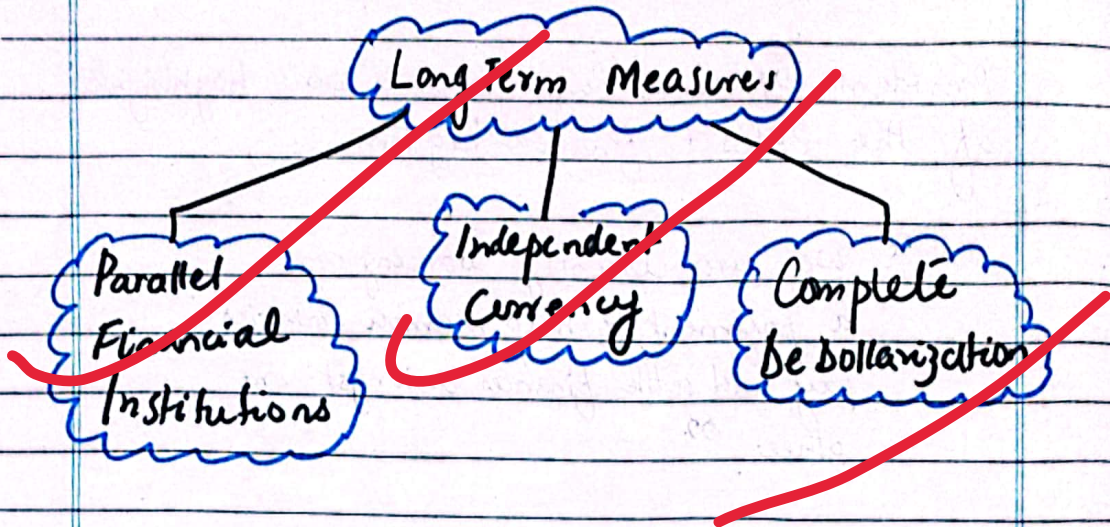 Long Term Measures
Parallel
Financial
Institutions
Independent
Currency
Complete
De Dollarization